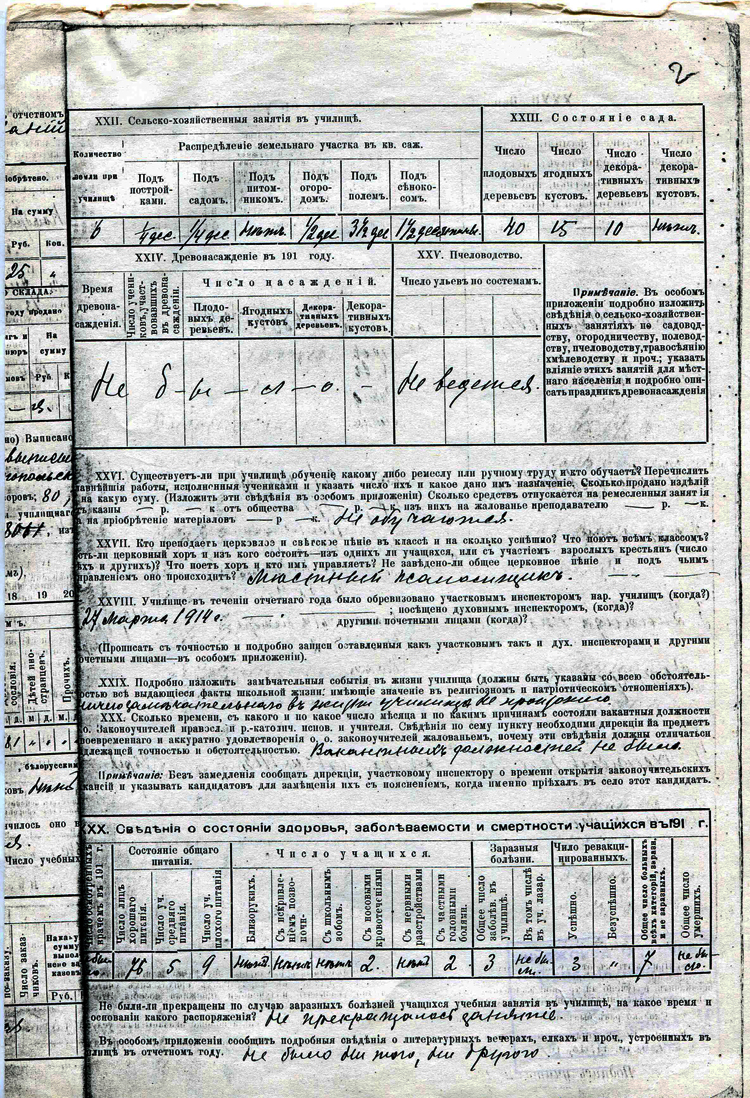 2
XXII. Сельско-хозяйственныя занятія въ училищѣ.
XXIII. Состояніе сада.
Количество земли при училищѣ
Распредѣленіе земельнаго участка въ кв. саж.
Подъ постройками.
Подъ садомъ.
Подъ питомникомъ.
Подъ огородомъ.
Подъ полемъ.
Подъ сѣнокосомъ.
Число плодовыхъ деревьевъ
Число ягодныхъ кустовъ.
Число декоративныхъ деревьевъ
Число декоративныхъ кустовъ.
6 ¼ дес ¼ дес Нѣтъ. ½ дес 3½ дес 1½ дес 40 15 10 Нѣтъ.
XXIV. Древонасажденіе въ 191 году.
XXV. Пчеловодство.
Время древонасажденія.
Число учениковъ, участвовавшихъ въ древонасажденіи.
Число насажденій.
Плодовыхъ деревьевъ.
Ягодныхъ кустовъ
Декоративныхъ деревьевъ.
Декоративныхъ кустовъ.
Число ульевъ по системамъ.
Не б – ы – ло – о. –
Не ведется.
Примѣчаніе. Въ особомъ
приложеніи подробно изложить
свѣдѣнія о сельско-хозяйствен-
ныхъ занятіяхъ по садовод-
ству, огородничеству, полевод-
ству, пчеловодству, травосѣянію
хмѣлеводству и проч.; указать
вліяніе этихъ занятій для мѣст-
наго населенія и подробно опи-
сать праздникъ древонасажденія
XXVI. Существуетъ-ли при училищѣ обученіе какому либо ремеслу или ручному труду и кто обучаетъ? Перечислить
главнѣйшія работы, исполненныя учениками и указать число ихъ и какое дано имъ назначеніе. Сколько продано издѣлій
на какую суму. (Изложить эти свѣдѣнія въ особомъ приложеніи) Сколько средствъ отпускается на ремесленныя занятія
казны — р. — к. отъ общества р. к. изъ нихъ на жалованье преподавателю — р. —к.
а на пріобрѣтеніе матеріаловъ — р —к. Не обучаются.
XXVII. Кто преподаетъ церковное и свѣтское пѣніе въ классѣ и на сколько успѣшно? Что поютъ всѣмъ классомъ?
сть-ли церковный хоръ и изъ кого состоитъ—изъ однихъ ли учащихся, или съ участіемъ взрослыхъ крестьянъ (число
хъ и другихъ)? Что поетъ хоръ и кто имъ управляетъ? Не заведено-ли общее церковное пѣніе и подъ чьимъ
правленіемъ оно происходитъ? Мѣстный псаломщикъ.
XXVIII. Училище въ теченіи отчетнаго года было обревизовано участковымъ инспекторомъ нар. училищъ (когда?)
27 марта 1914 г. ; посѣщено духовнымъ инспекторомъ, (когда)?
другими почетными лицами (когда)?
(Прописать съ точностью и подробно записи оставленныя какъ участковымъ такъ и дух. инспекторами и другими
очетными лицами—въ особомъ приложеніи).
XXIX. Подробно изложить замѣчательныя событія въ жизни училища (должны быть указаны со всею обстоятель-
ностью всѣ выдающіеся факты школьной жизни, имѣющіе значеніе въ религіозномъ и патріотическомъ отношеніяхъ).
ничего замѣчательнаго въ жизни училища не произошло
XXX. Сколько времени, съ какого и по какое число мѣсяца и по какимъ причинамъ состояли вакантныя должности
о. Законоучителей правосл. и р.-католич. исповѣ. и учителя. Свѣдѣнія по сему пункту необходимы дирекціи на предметъ
воевременнаго и аккуратно удовлетворенія о. о. законоучителей жалованьемъ, почему эти свѣдѣнія должны отличаться
длежащей точностью и обстоятельностью. Вакантныхъ должностей не было.
Примѣчаніе: Безъ замедленія сообщать дирекціи, участковому инспектору о времени открытія законоучительскихъ
кансій и указывать кандидатовъ для замѣщенія ихъ съ поясненіемъ, когда именно пріѣхалъ въ село этотъ кандидатъ.
XXX. Свѣдѣнія о состояніи здоровья, заболѣваемости и смертности учащихся въ 191 г.
Состояніе общаго питанія.
Число учащихся.
Заразныя болѣзни.
Число ревакцинированныхъ.
Число лицъ хорошаго питанія.
Число уч. средняго питанія.
Число уч. плохого питанія
Близорукихъ.
Съ искривленіемъ позвоночн.
Съ школьнымъ зобомъ.
Съ носовыми кровотеченіями
Съ нервными разстройствами
Съ частыми головными болями.
Общее число заболѣв. въ училищѣ.
Въ томъ числѣ въ уч. лазар.
Успѣшно.
Безуспѣшно.
Общее число больныхъ всѣхъ категорій, зараз. и не заразныхъ.
Общее число умершихъ.
76 5 9 Нѣтъ. Нѣтъ Нѣтъ 2. Нѣтъ 2 3 не было. 3 " 7 не было.
Не были-ли прекращены по случаю заразныхъ болѣзней учащихся учебныя занятія въ училищѣ, на какое время и
основаніи какого распоряженія? Не прекращалось занятіе.
Въ особомъ приложеніи сообщить подробныя свѣдѣнія о литературныхъ вечерахъ, елкахъ и проч., устроенныхъ въ
лищѣ въ отчетномъ году. Не было ни того, ни другого